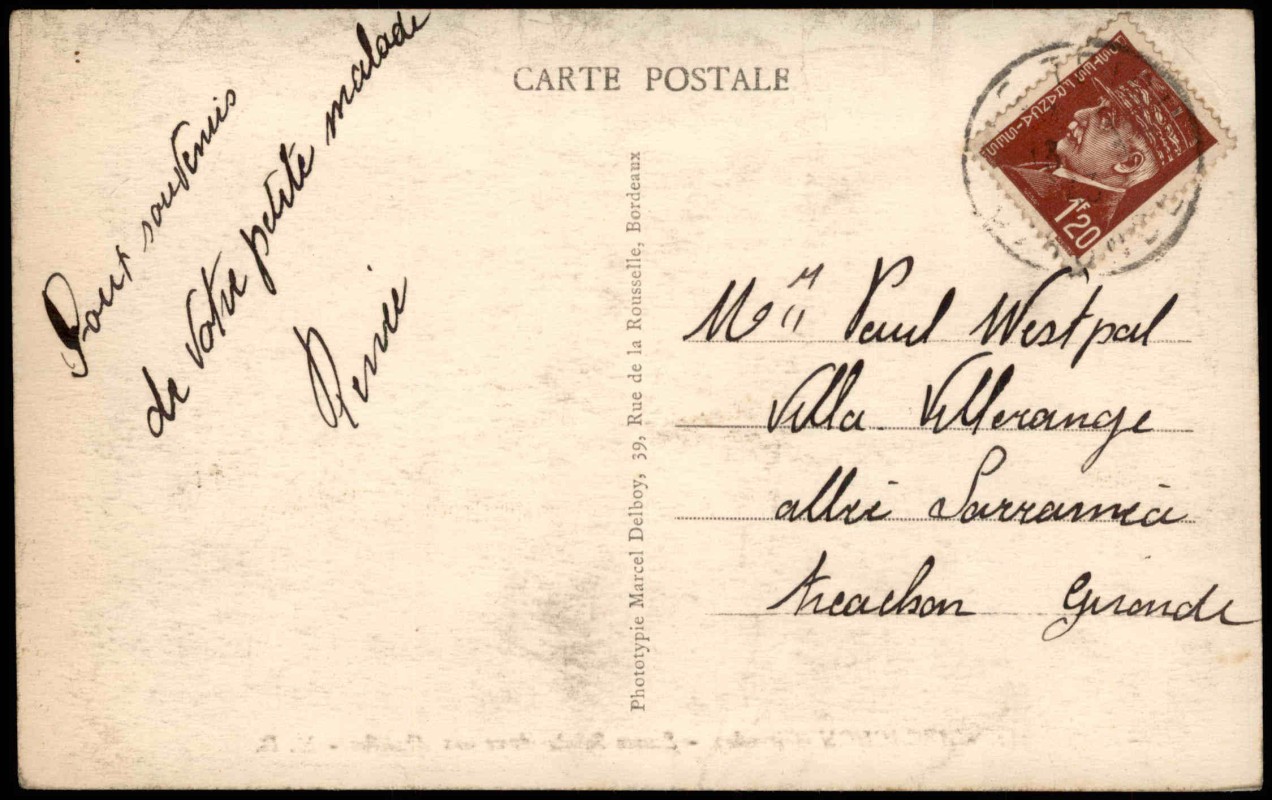 CARTE POSTALE
Pour souvenir
de votre petite malade
Renée
POSTES FRANÇAISES
1F20
Phototypie Marcel Delboy, 39, Rue de la Rousselle, Bordeaux
Paul Westpal
Villa Villerange
allée
Arcachon Gironde